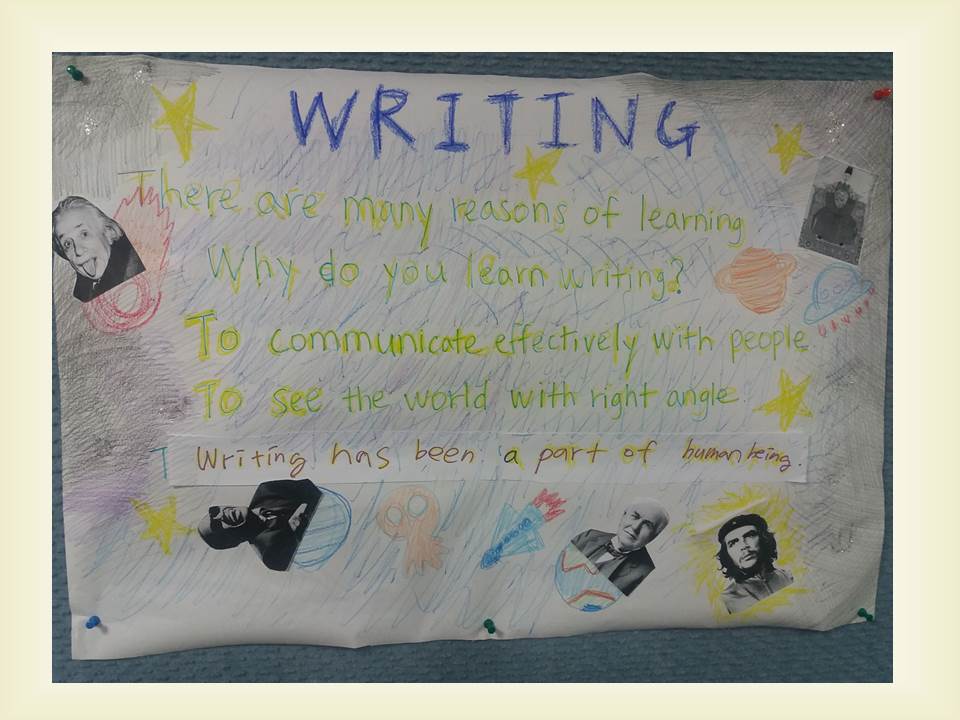 WRITING
There are many reasons of learning
Why do you learn writing?
To communicate effectively with people.
To see the world with right angle.
T Writing has been a part of human being.